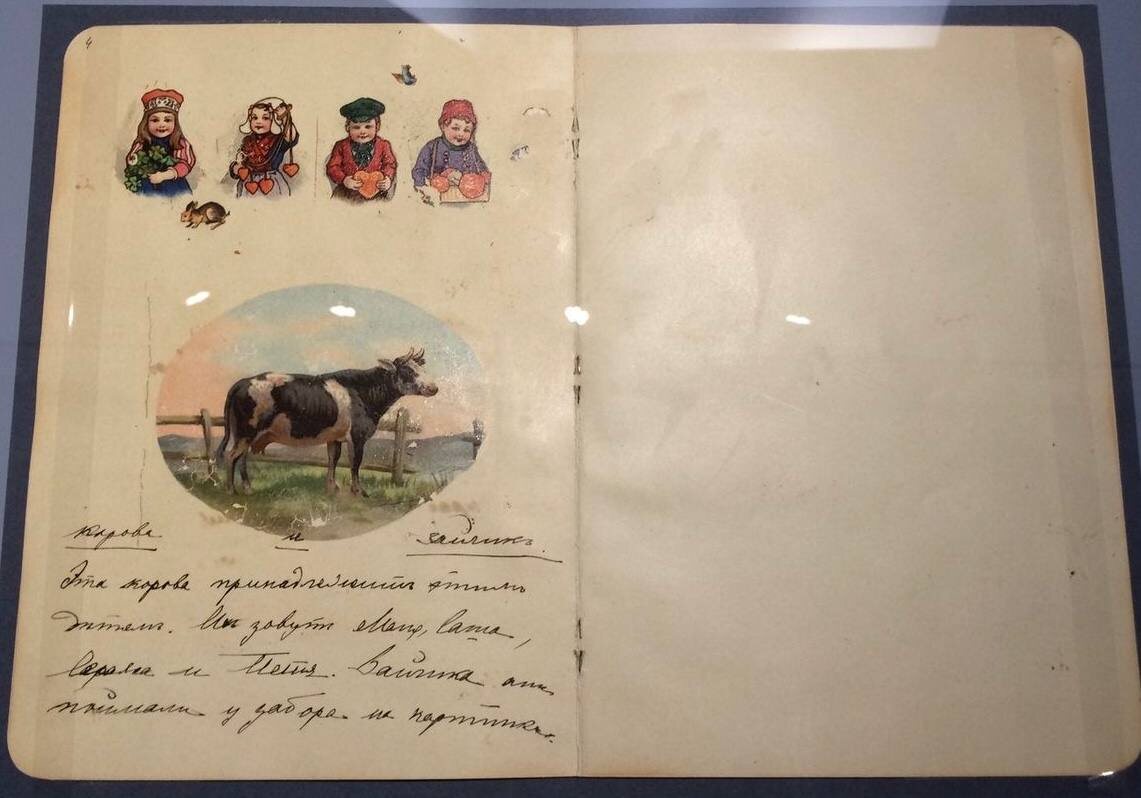 4
корова и зайчикъ.
Эта корова принадлежитъ этимъ
дѣтямъ. Ихъ зовутъ Маня, Саша,
Сережа и Петя. Зайчика они
поймали у забора на картинкѣ.